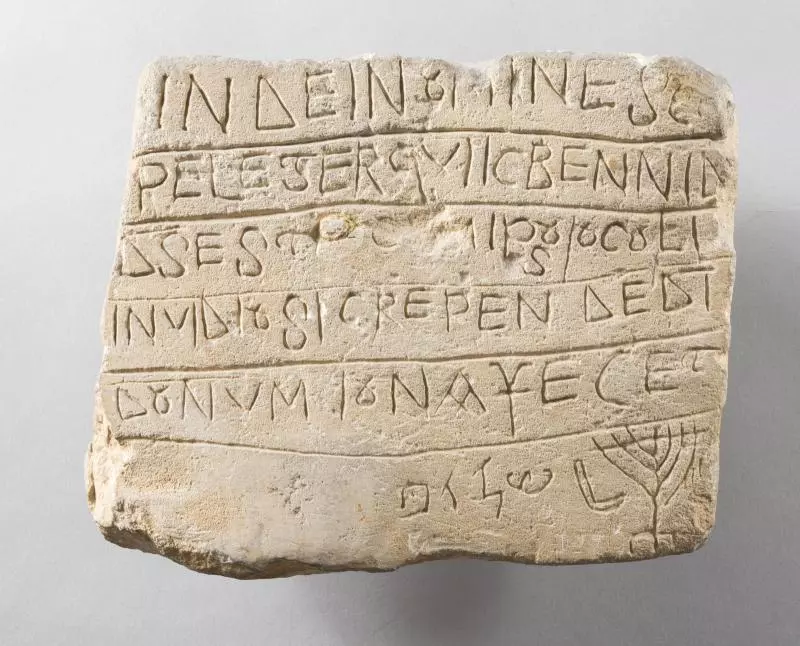 IN DEI NOMINE S
PELEGER QVI IC BENNID
DS ESTO CVM IPSO OCOLI
INVIDIOSI CREPEN DE DI
DONVM IONA FECET
שלום